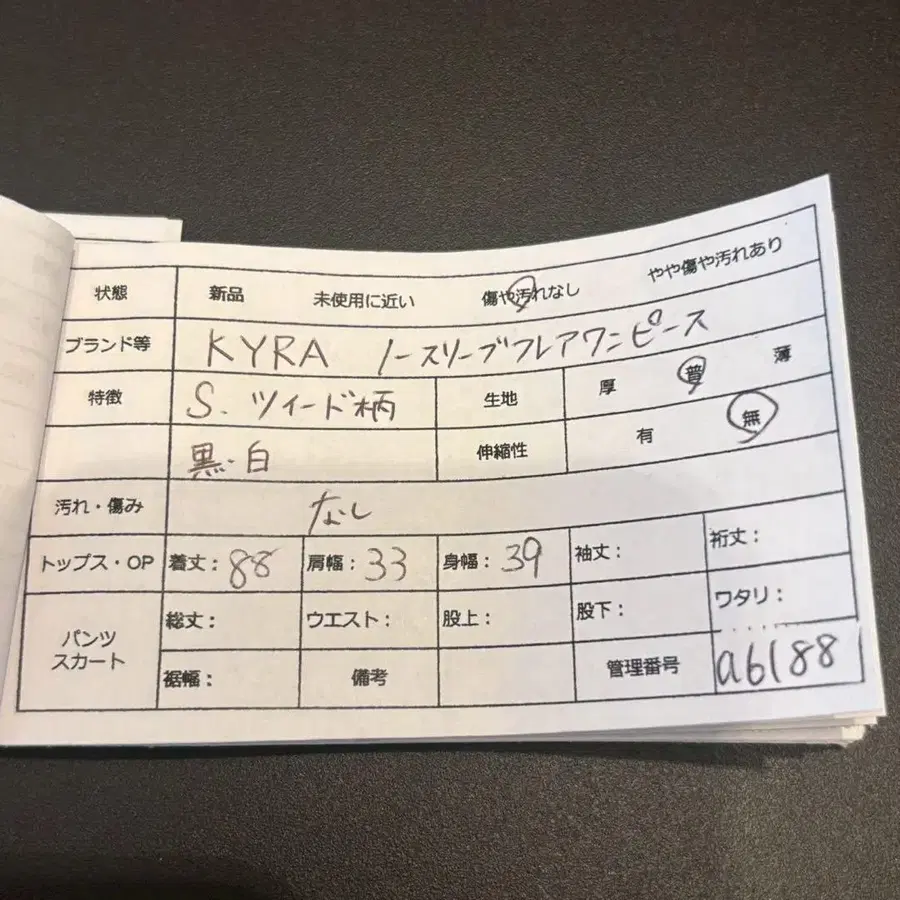 状態 新品 未使用に近い 傷や汚れなし やや傷や汚れあり
ブランド等 KYRA ノースリーブフレアワンピース
特徴 S. ツイード柄 生地 厚 普 薄
黒・白 伸縮性 有 無
汚れ・傷み なし
トップス・OP 着丈：88 肩幅：33 身幅：39 袖丈： 裄丈：
パンツ スカート 総丈： ウエスト： 股上： 股下： ワタリ：
裾幅： 備考 管理番号 a61881